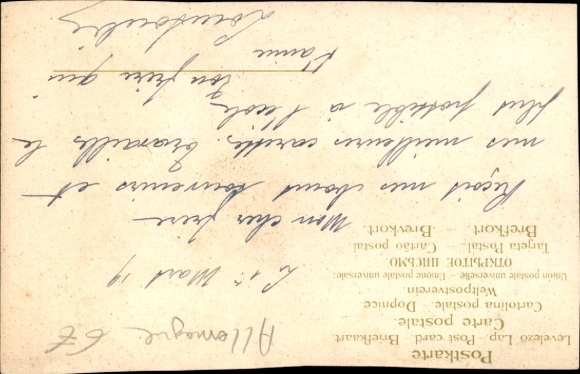 Postkarte
Levelező Lap. - Post card - Briefkaart.
Carte postale.
Cartolina postale - Dopnice
Weltpostverein.
Union postale universelle - Unione postale universale.
ОТКРЫТОЕ ПИСЬМО
Tarjeta Postal. - Cartão postal.
Brefkort. - Brevkort.
Allemagne 67
Mars 19
Mon cher frère
Reçoit mes bons souvenirs et
mes meilleures caresses. Travailles le
plus possible à l'école
Ton frère qui
t'aime